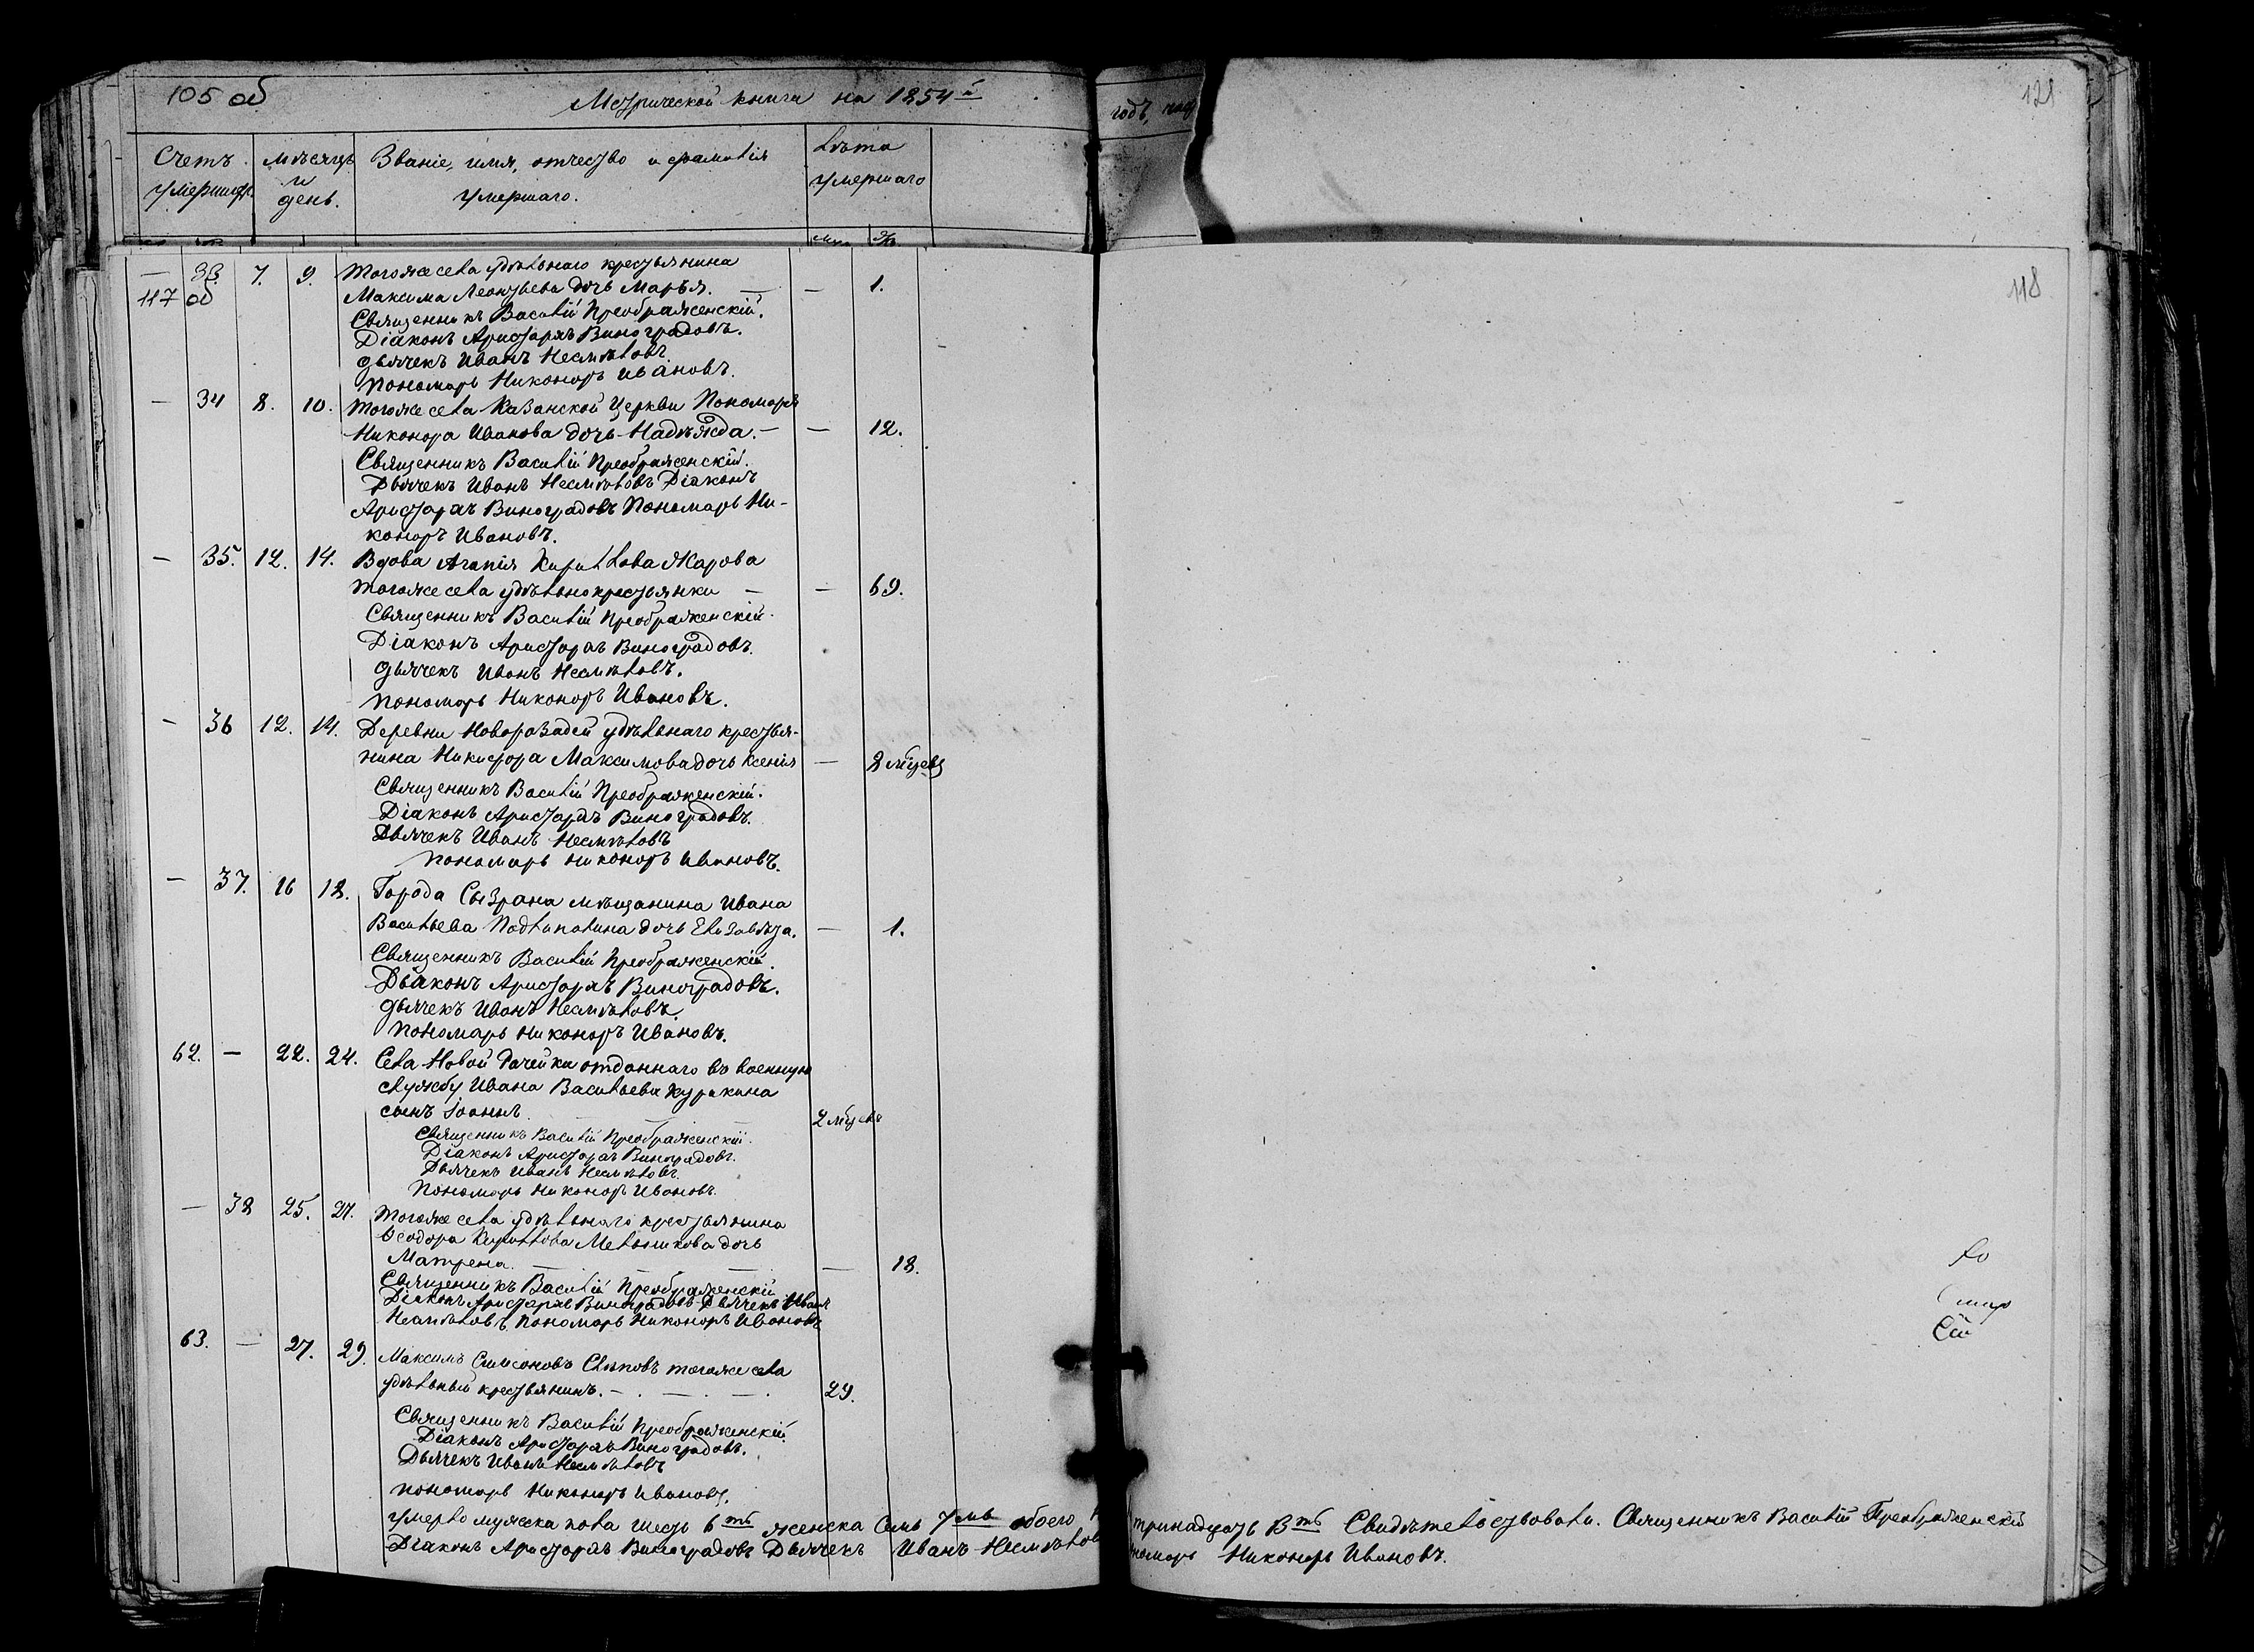 105 об
Метрической книги на 1854й
годъ,
121
Счетъ умершихъ.
мѣсяцъ и день.
Званіе, имя, отчество и фамилія умершаго.
Лѣта умершаго
— 33. 7. 9. Тогоже села удѣльнаго крестьянина
117 об
118
Максима Леонтьева дочь Марья. — — 1.
Священникъ Василій Преображенскій.
Діаконъ Аристархъ Виноградовъ.
дьячекъ Иванъ Несмѣловъ.
пономарь Никоноръ Ивановъ.
— 34 8. 10. Тогоже села Казанской Церкви Пономаря
Никонора Иванова дочь Надѣжда. — — 12.
Священникъ Василій Преображенскій.
Дьячекъ Иванъ Несмѣловъ Діаконъ
Аристархъ Виноградовъ Пономарь Ни-
коноръ Ивановъ.
— 35. 12. 14. Вдова Агапія Кириллова Жарова
тогоже села удѣльно крестьянки — — 69.
Священникъ Василій Преображенскій.
Діаконъ Аристархъ Виноградовъ.
дьячекъ Иванъ Несмѣловъ.
пономарь Никоноръ Ивановъ.
— 36 12. 14. Деревни Новорозадей удѣльнаго крестья-
нина Никифора Максимова дочь Ксенія — 2 мѣсяцъ
Священникъ Василій Преображенскій.
Діаконъ Аристархъ Виноградовъ.
Дьячекъ Иванъ Несмѣловъ
пономарь Никоноръ Ивановъ.
— 37. 16 18. Города Сызрана мѣщанина Ивана
Васильева Подлипалина дочь Елизавѣта. — 1.
Священникъ Василій Преображенскій.
Дьяконъ Аристархъ Виноградовъ.
дьячекъ Иванъ Несмѣловъ.
пономарь Никоноръ Ивановъ.
62. — 22. 24. Села Новой Рачейки отданнаго въ военную
службу Ивана Васильева Куракина
сынъ Іоаннъ. 2 мѣсяцъ
Священникъ Василій Преображенскій.
Діаконъ Аристархъ Виноградовъ.
Дьячекъ Иванъ Несмѣловъ.
Пономарь Никоноръ Ивановъ.
— 38 25. 27. Тогоже села удѣльнаго крестьянина
Ѳеодора Кириллова Мельникова дочь
Матрена. — — — 18.
Священникъ Василій Преображенскій
Діаконъ Аристархъ Виноградовъ Дьячекъ Иванъ
Несмѣловъ, Пономарь Никоноръ Ивановъ
63. — 27. 29. Максимъ Симоновъ Слѣповъ тогоже села
удѣльный крестьянинъ. — . — . — . 29.
Священникъ Василій Преображенскій.
Діаконъ Аристархъ Виноградовъ.
Дьячекъ Иванъ Несмѣловъ
пономарь Никоноръ Ивановъ.
умерло мужска пола шесть 6ть женска семь 7мь обоего тринадцать 13ть Свидѣтельствовали. Священникъ Василій Преображенскій
Діаконъ Аристархъ Виноградовъ Дьячекъ Иванъ Несмѣловъ номарь Никоноръ Ивановъ.